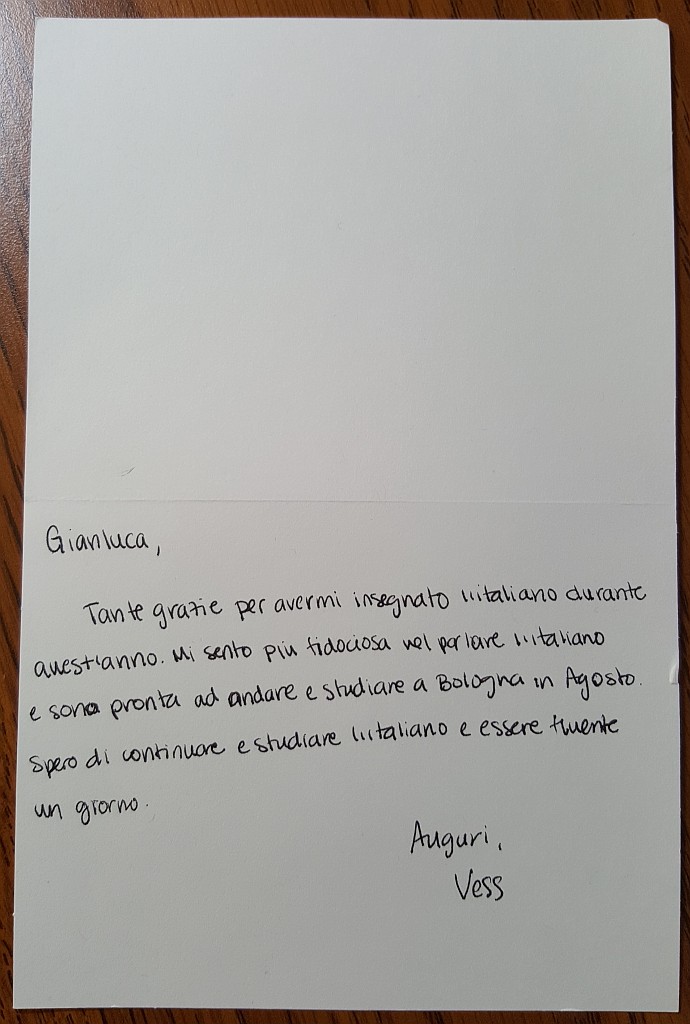 Gianluca,
Tante grazie per avermi insegnato l'italiano durante
quest'anno. Mi sento più fidociosa nel parlare l'italiano
e sono pronta ad andare e studiare a Bologna in Agosto.
Spero di continuare e studiare l'italiano e essere fluente
un giorno.
Auguri,
Vess